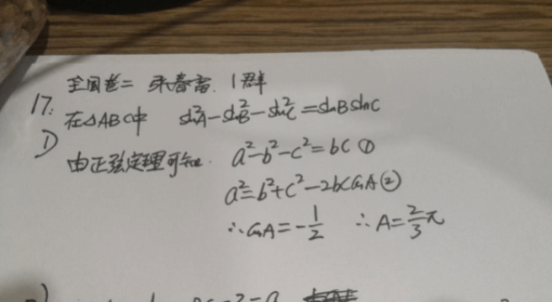 全国卷二 1群
17.
在△ABC中 sin²A-sin²B-sin²C=sinBsinC
1)
由正弦定理可知. a²-b²-c²=bc ①
a²=b²+c²-2bccosA②
∴cosA=-1/2 ∴A=2/3π